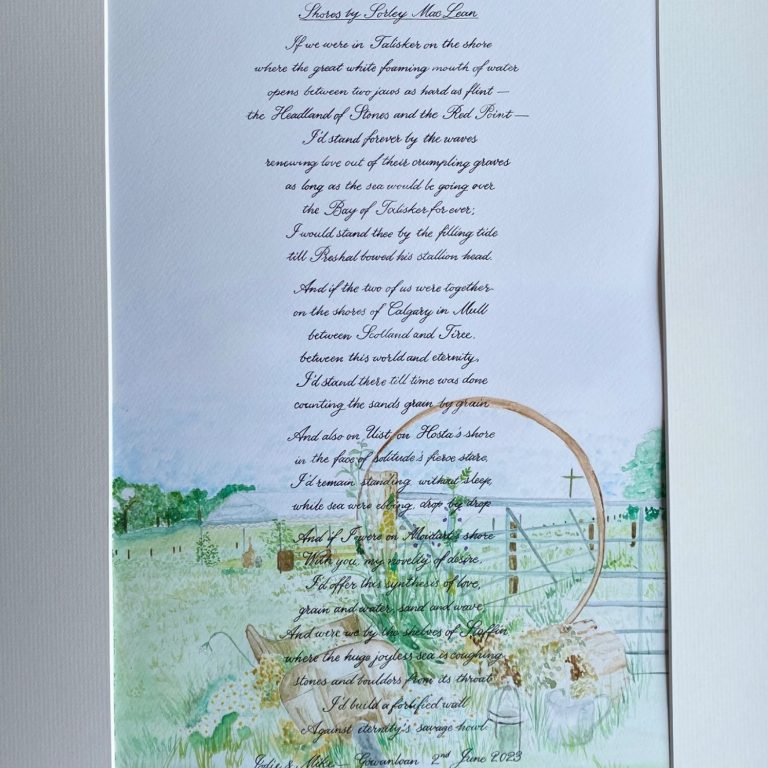 Shores by Sorley MacLean
If we were in Talisker on the shore
where the great white foaming mouth of water
opens between two jaws as hard as flint —
the Headland of Stones and the Red Point —
I'd stand forever by the waves
renewing love out of their crumpling graves
as long as the sea would be going over
the Bay of Talisker for ever;
I would stand thee by the filling tide
till Preshal bowed his stallion head.
And if the two of us were together
on the shores of Calgary in Mull
between Scotland and Tiree.
between this world and eternity,
I'd stand there till time was done
counting the sands grain by grain
And also on Uist, on Hosta's shore
in the face of solitude's fierce stare,
I'd remain standing, without sleep,
while sea were ebbing, drop by drop
And if I were on Moidart's shore
With you, my novelty of desire,
I'd offer this synthesis of love,
grain and water, sand and wave,
And were we by the shelves of Staffin
where the huge joyless sea is coughing
stones and boulders from its throat
I'd build a fortified wall
Against eternity's savage howl
Jodie & Mike — Gowanloan 2nd June 2023